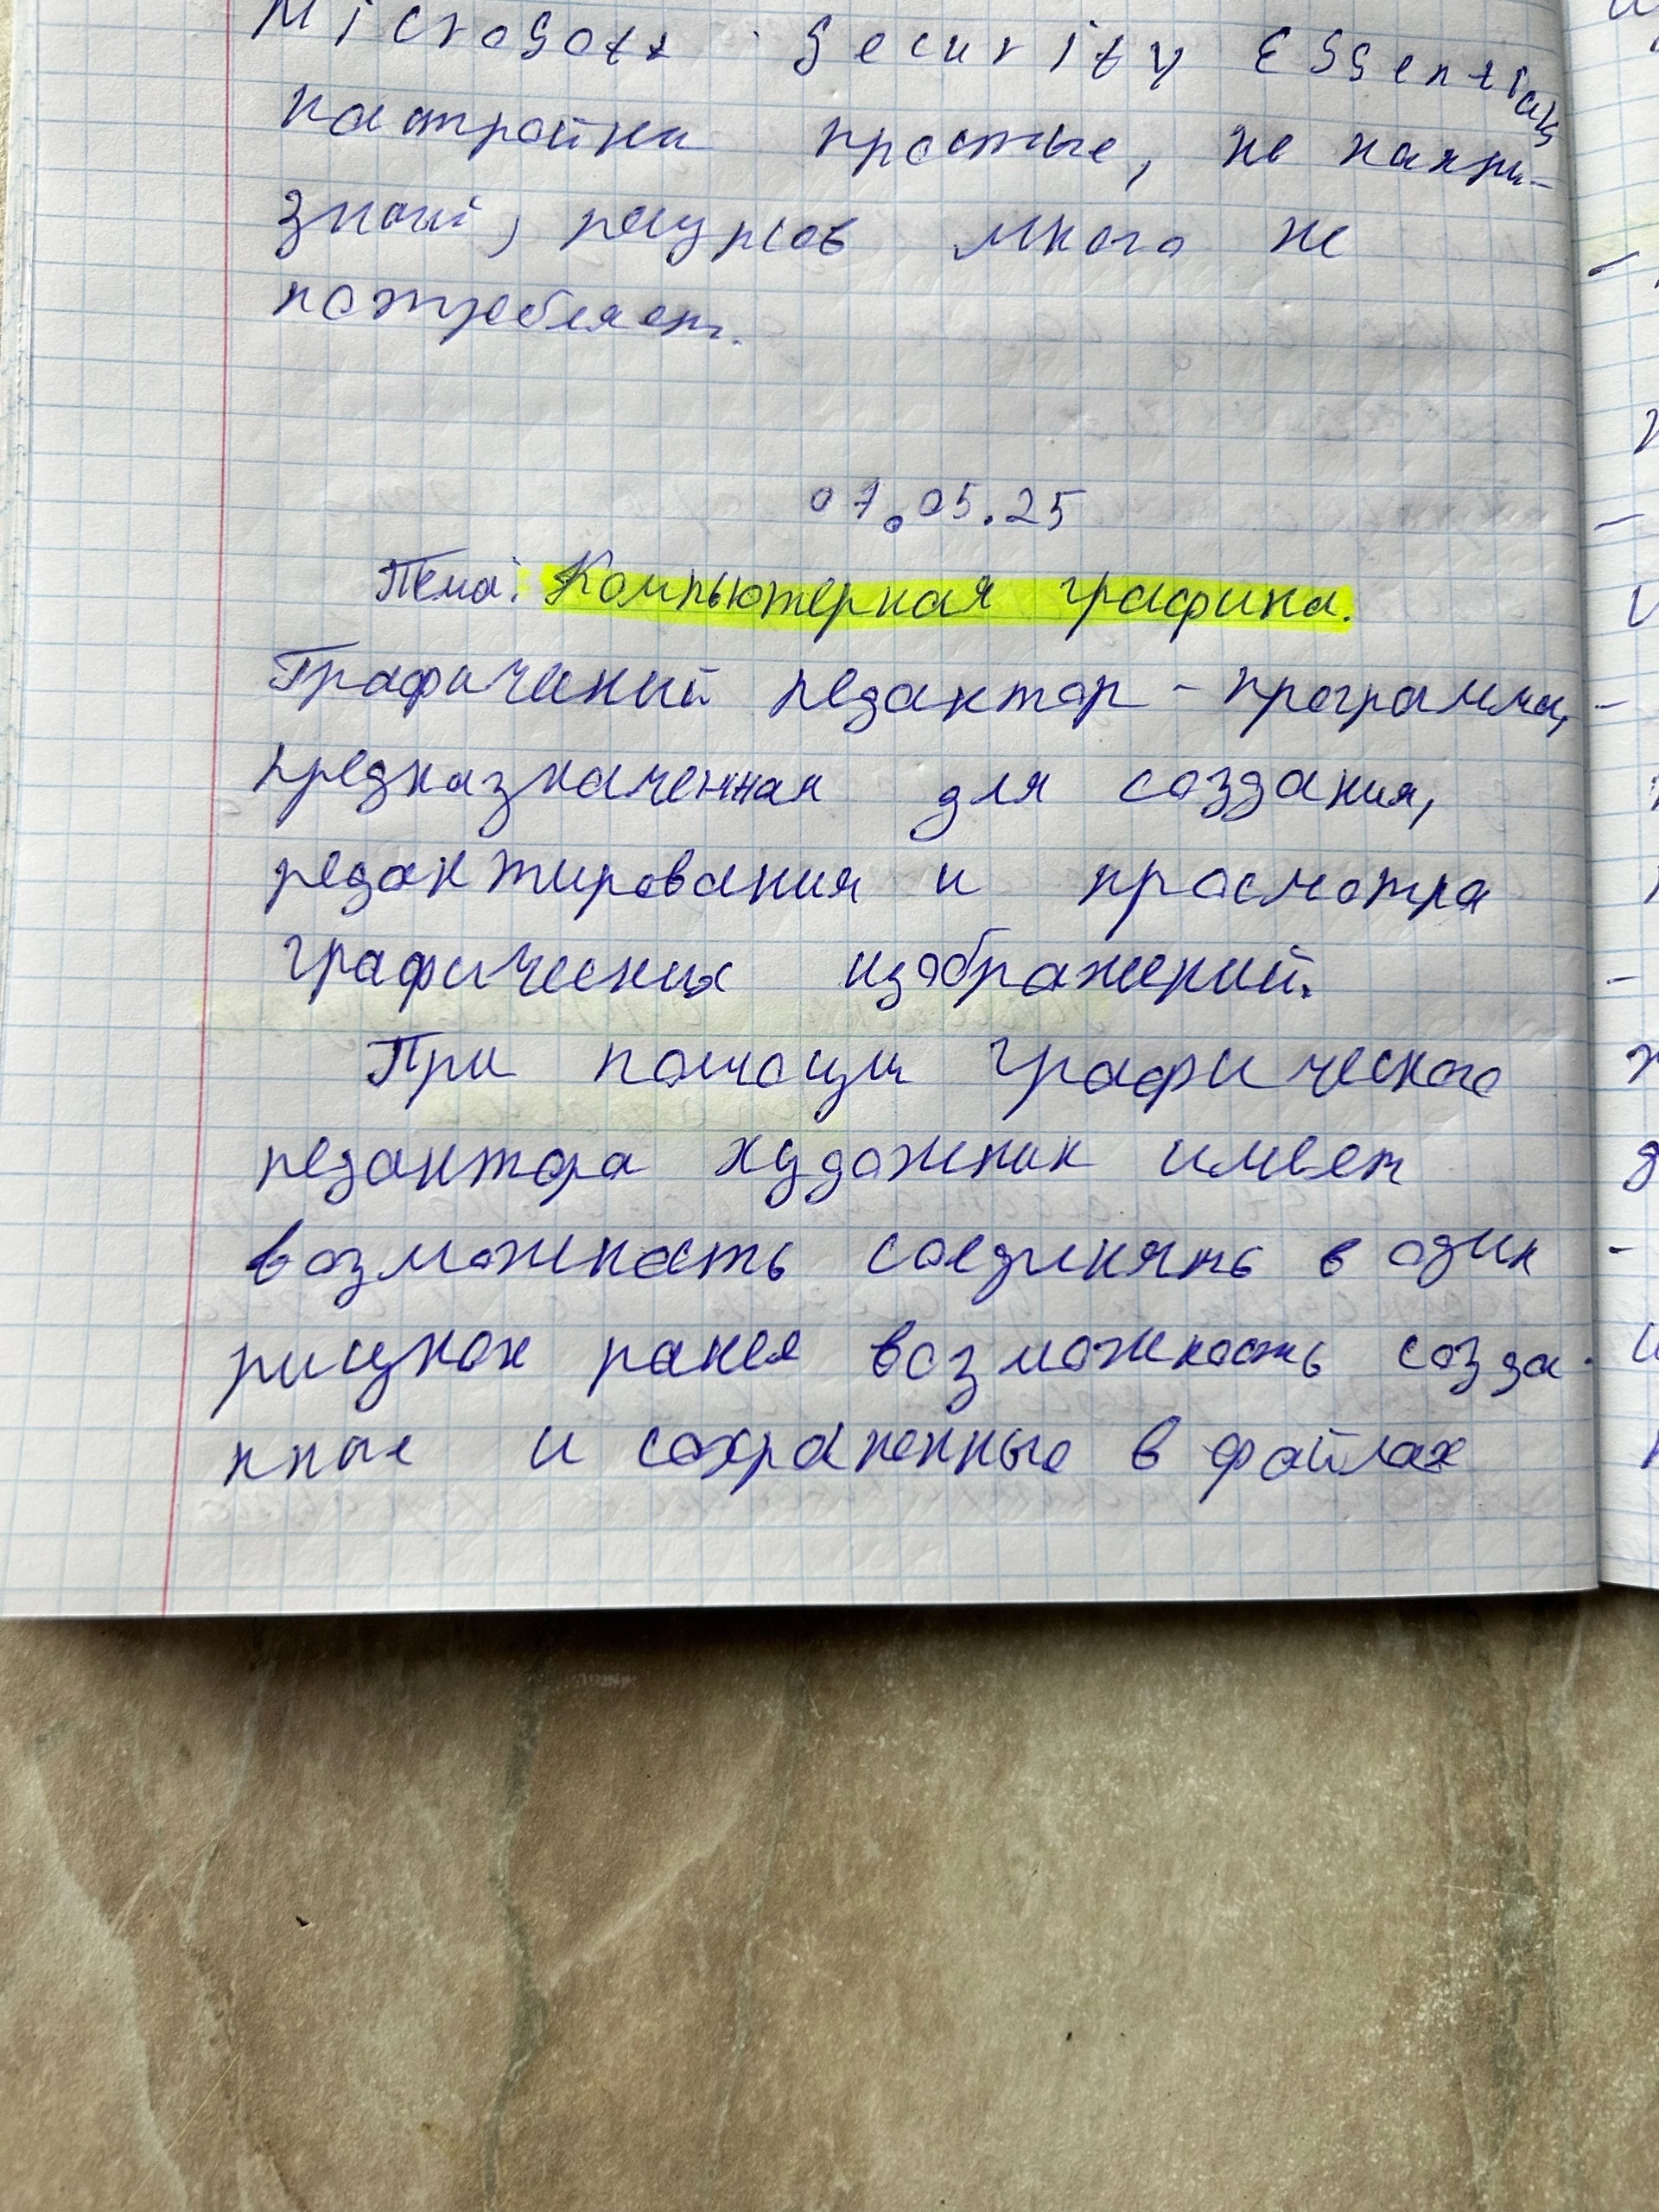 Microsoft Security Essentials
настройки простые, не
ресурсов много не
потребляет.
07.05.25
Тема: Компьютерная графика.
Графический редактор - программа,
предназначенная для создания,
редактирования и просмотра
графических изображений.
При помощи графического
редактора художник имеет
возможность соединять в один
рисунок ранея возможность созда
нные и сохраненные в файлах